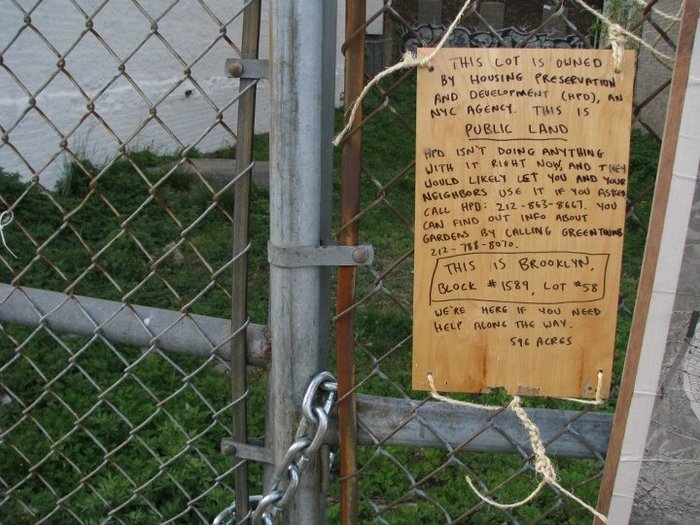 THIS LOT IS OWNED
BY HOUSING PRESERVATION
AND DEVELOPMENT (HPD), AN
NYC AGENCY. THIS IS
PUBLIC LAND
HPD ISN'T DOING ANYTHING
WITH IT RIGHT NOW, AND THEY
WOULD LIKELY LET YOU AND YOUR
NEIGHBORS USE IT IF YOU ASKED
CALL HPD: 212-863-8667. YOU
CAN FIND OUT INFO ABOUT
GARDENS BY CALLING GREENTHUMB
212-788-8070.
THIS IS BROOKLYN,
BLOCK #1589, LOT #58
WE'RE HERE IF YOU NEED
HELP ALONG THE WAY.
596 ACRES